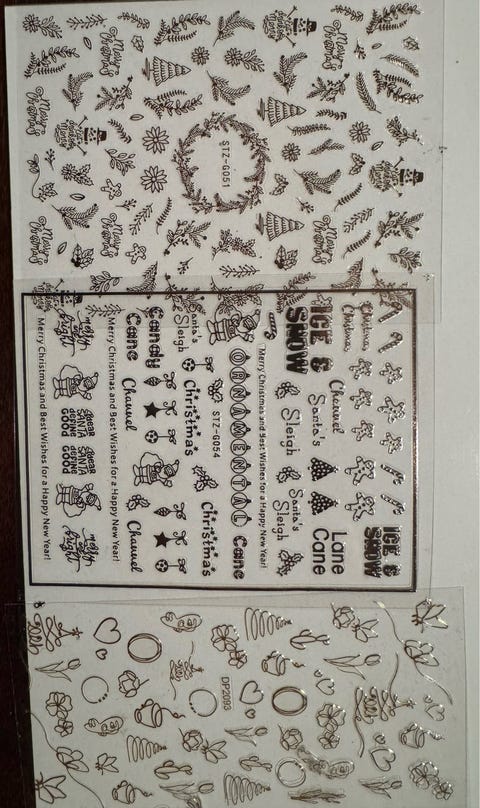 Merry Christmas
Merry Christmas
Merry Christmas
STZ-G051
Merry Christmas
Merry Christmas
Merry Christmas
ICE & SNOW
Christmas
Christmas
ICE & SNOW
Channel
Santa's
Lane
Cane
Sleigh
Santa's
Sleigh
Merry Christmas and Best Wishes for a Happy New Year!
ORNAMENTAL Cane
STZ-G054
Santa's
Sleigh
Christmas
Christmas
Candy
Cane
Channel
Channel
Merry Christmas and Best Wishes for a Happy New Year!
merry & bright
Dear
SANTA
define
GOOD
Dear
SANTA
define
GOOD
merry & bright
Merry Christmas and Best Wishes for a Happy New Year!
DP2093